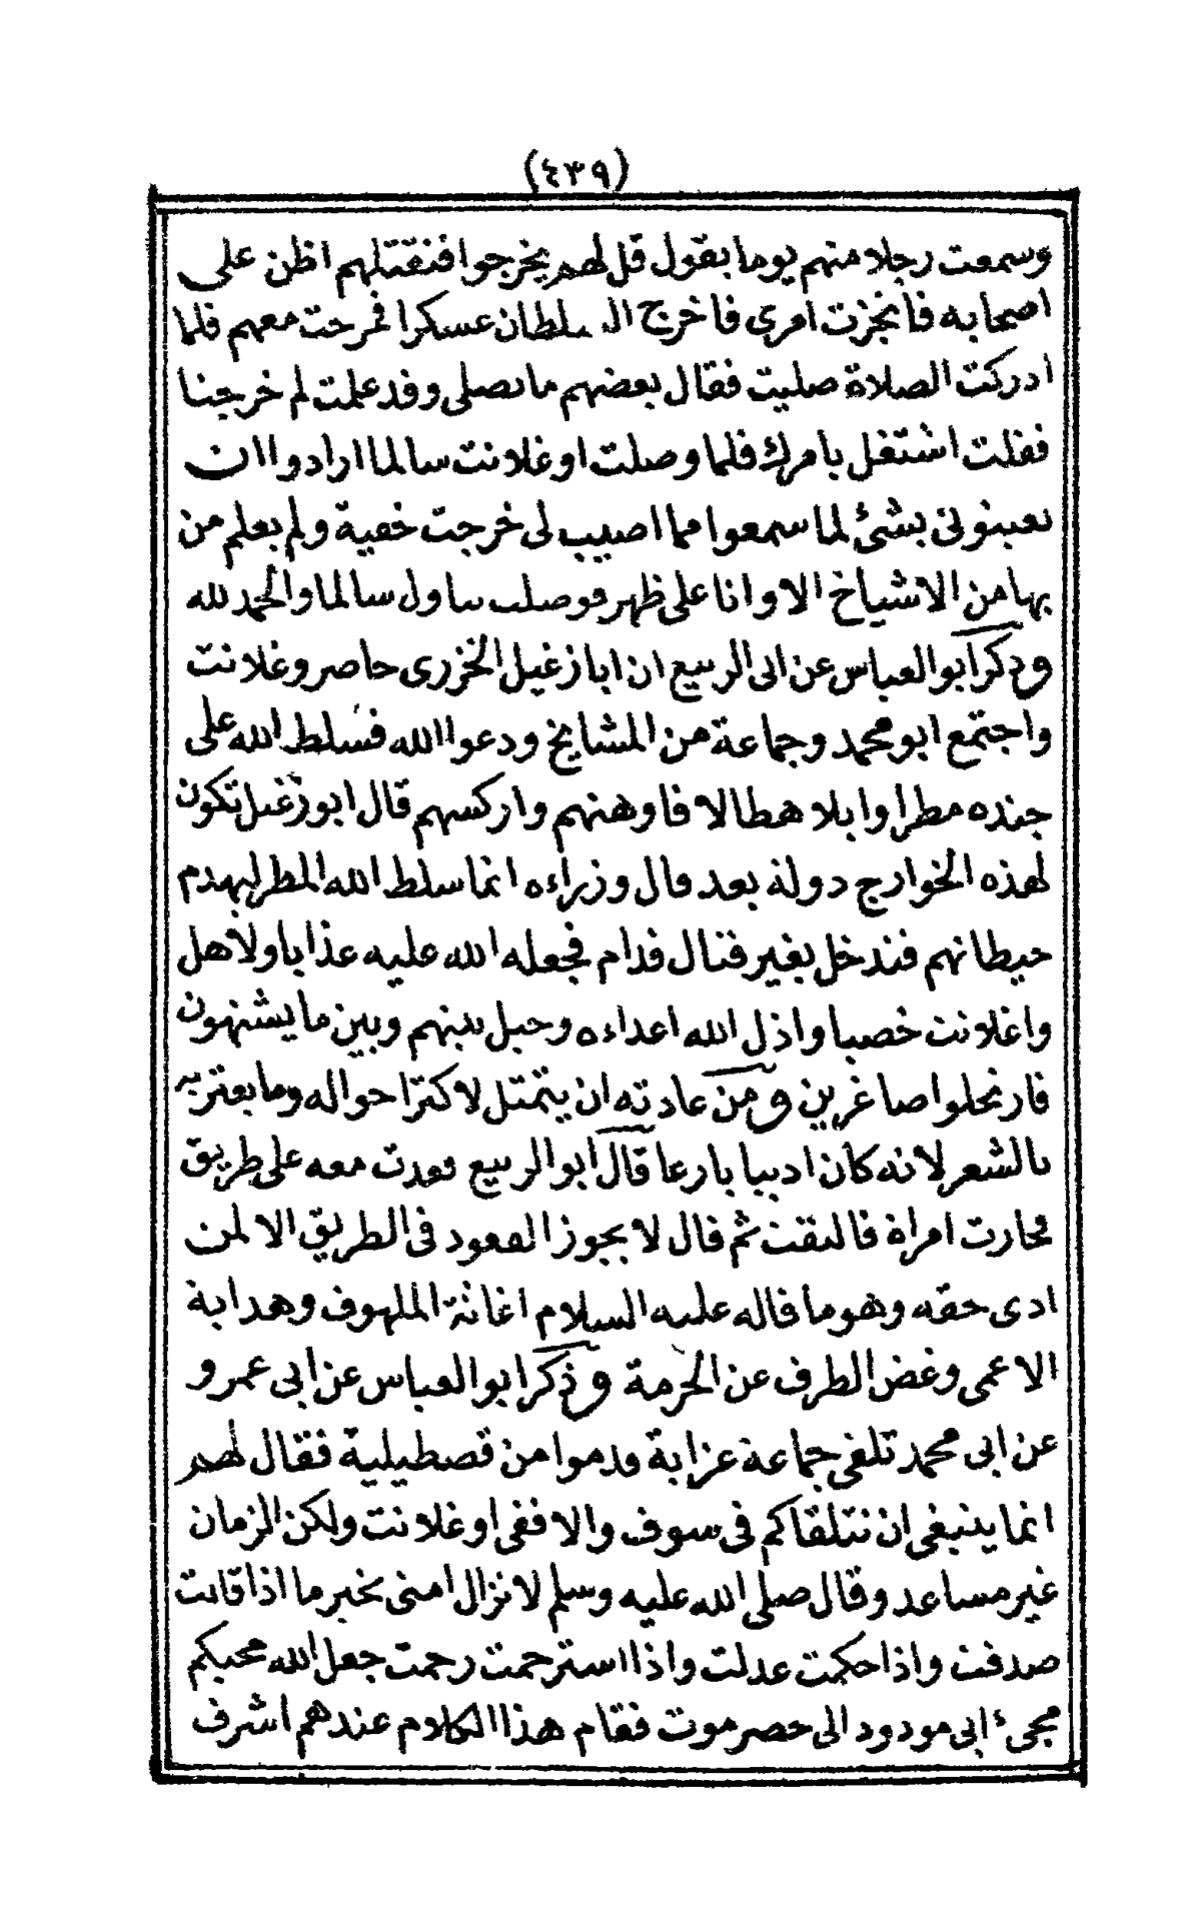 (٤٣٩)
وسمعت رجلا منهم يوما يقول قل لهم يخرجوا فنقتلهم اظن على
اصحابه فانجزت امرى فاخرج السلطان عسكرا فخرجت معهم فلما
ادركت الصلاة صليت فقال بعضهم ما تصلى وقد علمت لم خرجنا
فقلت اشتغل بامرك فلما وصلت اوغلانت سالما ارادوا ان
يعينونى بشئ لما سمعوا مما اصيب لى خرجت خفية ولم يعلم من
بها من الاشياخ الا وانا على ظهر فوصلت سالما والحمد لله
وذكر ابو العباس عن ابى الربيع ان ابا زغيل الخزرى حاصر وغلانت
واجتمع ابو محمد وجماعة من المشايخ ودعوا الله فسلط الله على
جنده مطرا وابلا هطالا فاوهنهم واركسهم قال ابو زغيل تكون
لهذه الخوارج دولة بعد قال وزراءه انما سلط الله المطر ليهدم
حيطانهم فندخل بغير قتال قدام فجعله الله عليه عذابا ولاهل
واغلانت خصبا واذل الله اعداءه وحيل بينهم وبين ما يشتهون
فارتحلوا صاغرين ومن عادته ان يتمثل لاكثر احواله وما يعتريه
بالشعر لانه كان اديبا بارعا قال ابو الربيع قعدت معه على طريق
فجازت امراة فالتفت ثم قال لا يجوز القعود فى الطريق الا لمن
ادى حقه وهو ما قاله عليه السلام اغاثة الملهوف وهداية
الاعمى وغض الطرف عن الحرمة وذكر ابو العباس عن ابى عمرو
عن ابى محمد تلقى جماعة عزابة قدموا من قصطيلية فقال لهم
انما ينبغى ان نتلقاكم فى سوف والا ففى اوغلانت ولكن الزمان
غير مساعد وقال صلى الله عليه وسلم لا تزال امتى بخير ما اذا قالت
صدقت واذا حكمت عدلت واذا استرحمت رحمت جعل الله محبكم
مجئ ابى مودود الى حضرموت فقام هذا الكلام عندهم اشرف